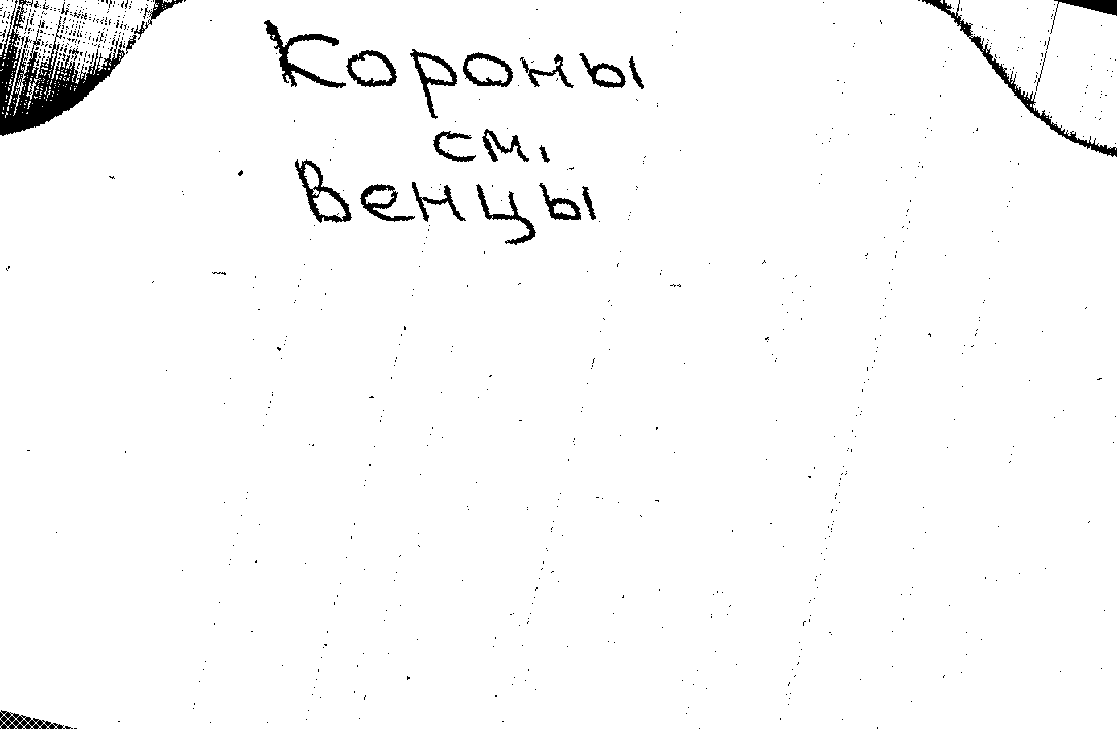 Короны
см.
Венцы